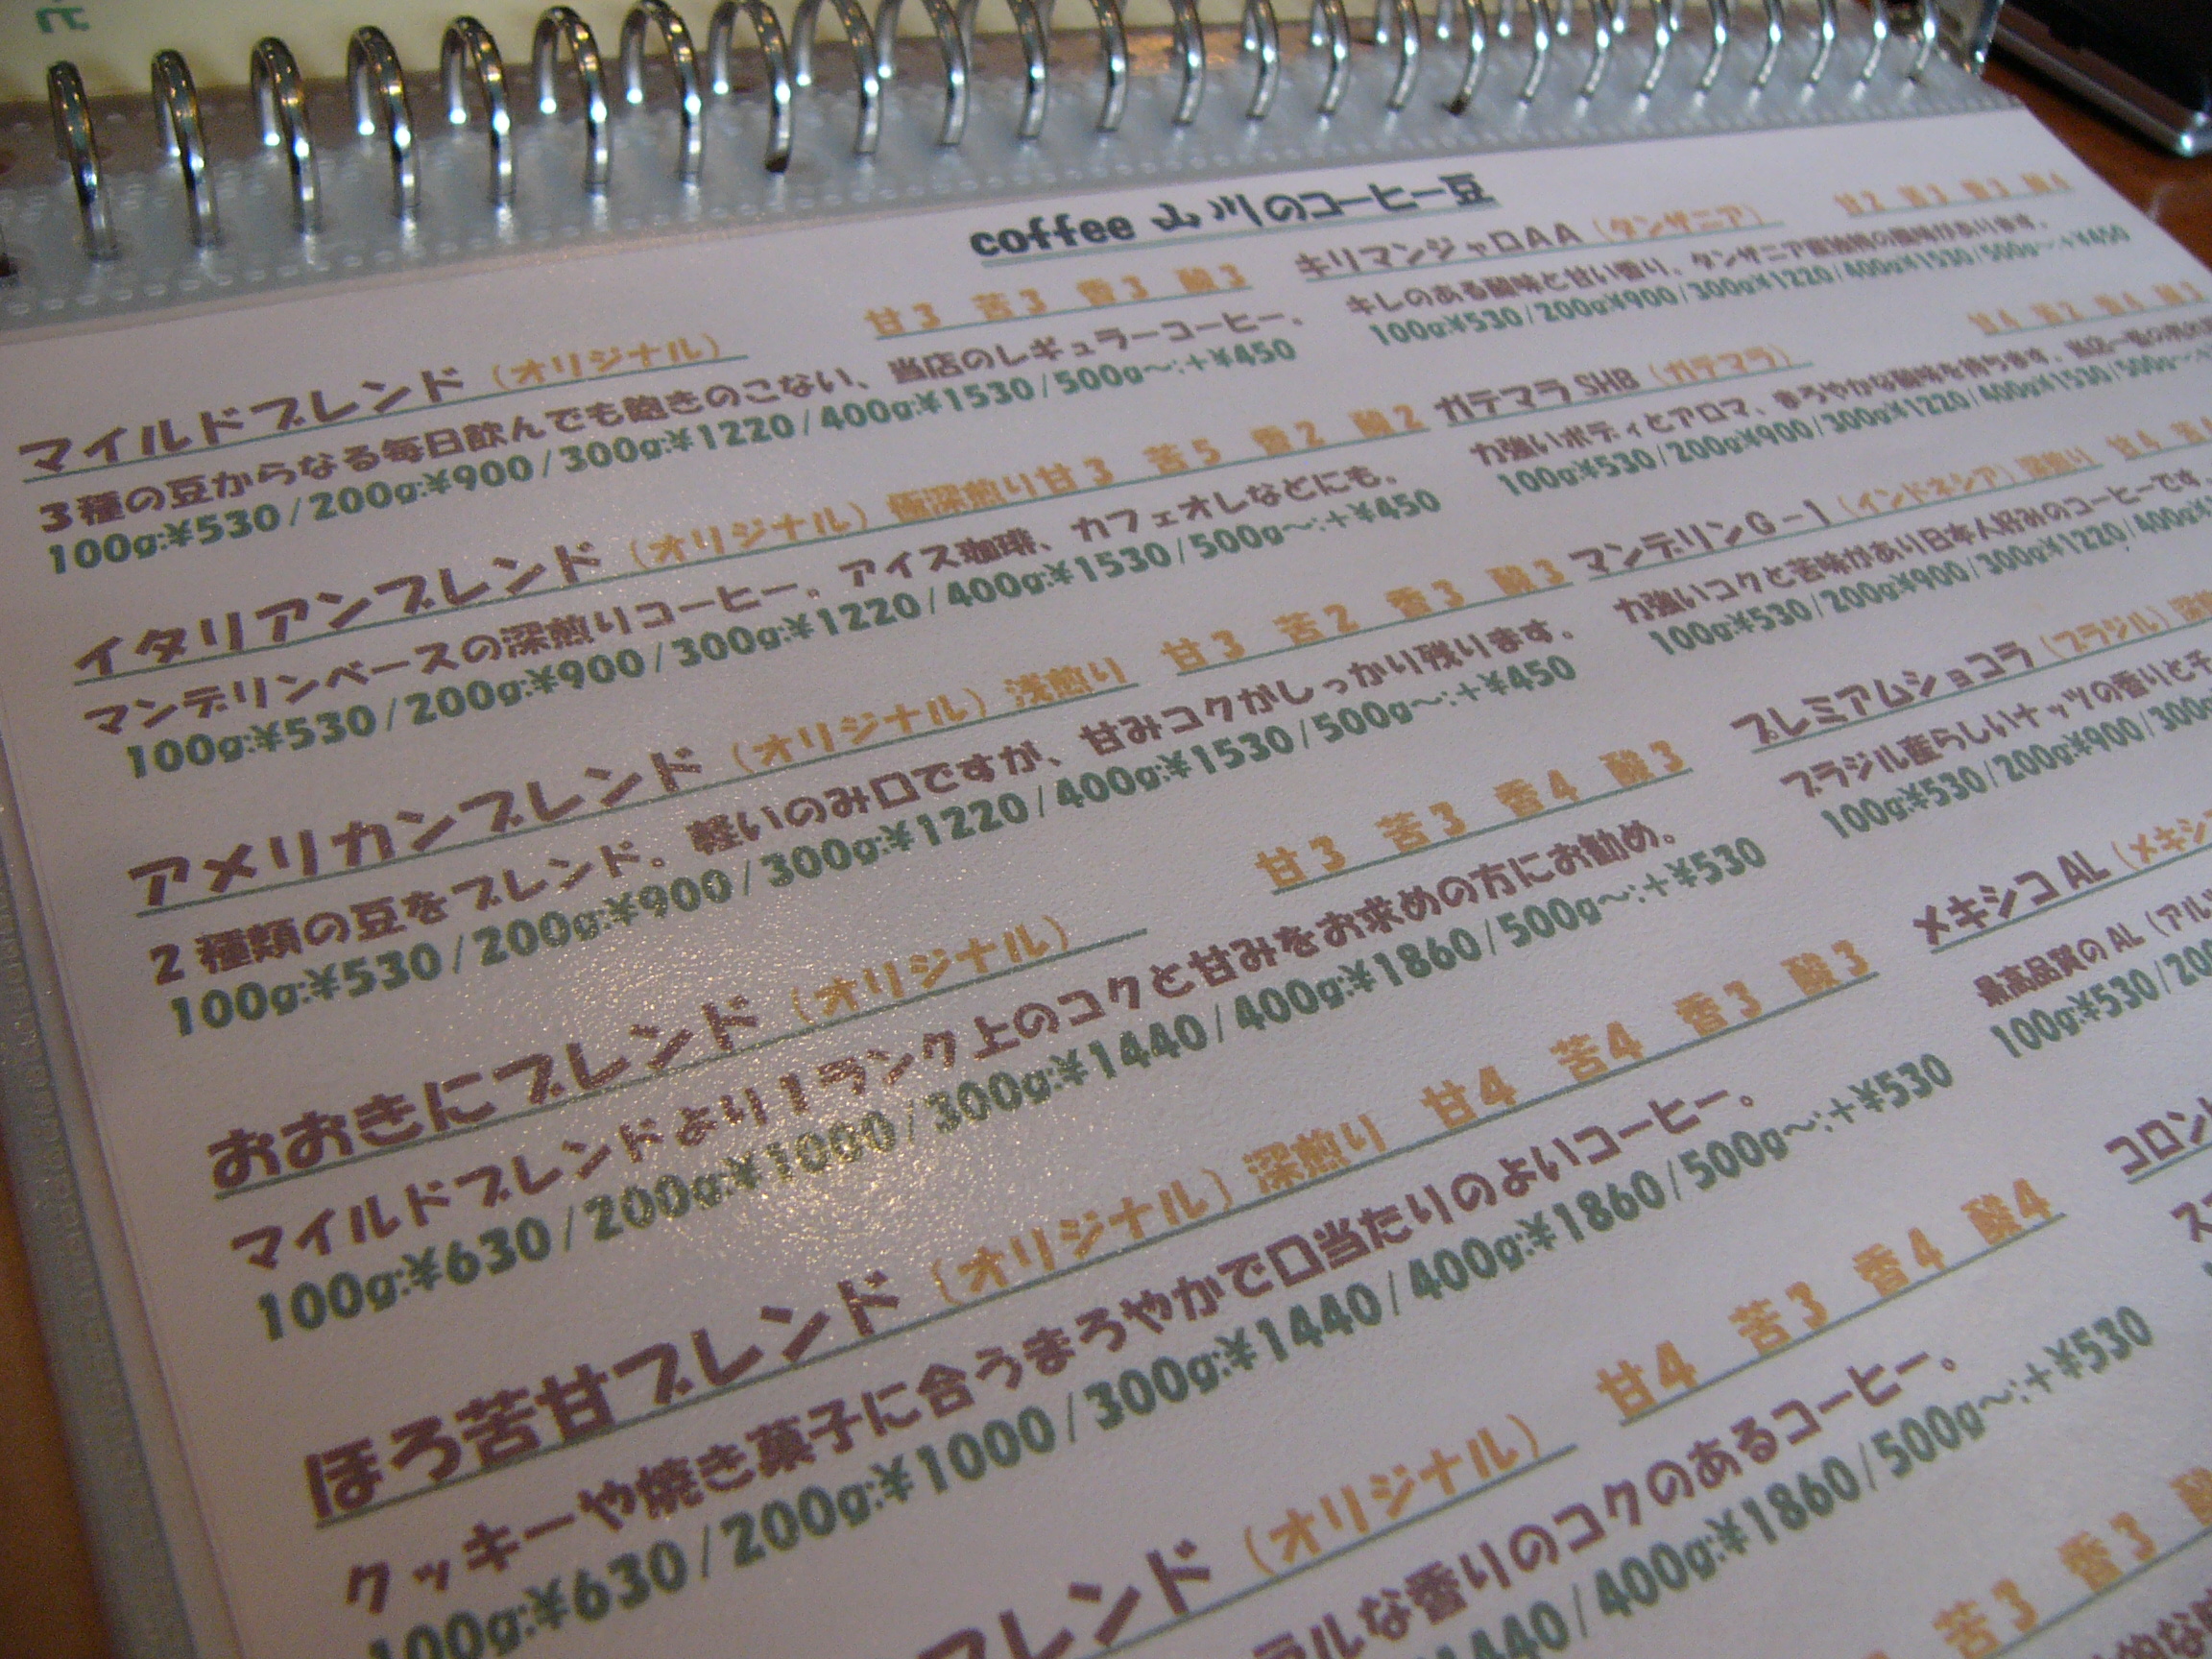 coffee 山川のコーヒー豆
マイルドブレンド（オリジナル） 甘3 苦3 香3 酸3
3種の豆からなる毎日飲んでも飽きのこない、当店のレギュラーコーヒー。
100g:¥530/200g:¥900/300g:¥1220/400g:¥1530/500g～:+¥450
イタリアンブレンド（オリジナル）極深煎り甘3 苦5 香2 酸2
マンデリンベースの深煎りコーヒー。アイス珈琲、カフェオレなどにも。
100g:¥530/200g:¥900/300g:¥1220/400g:¥1530/500g～:+¥450
アメリカンブレンド（オリジナル）浅煎り 甘3 苦2 香3 酸3
2種類の豆をブレンド。軽いのみ口ですが、甘みコクがしっかり残ります。
100g:¥530/200g:¥900/300g:¥1220/400g:¥1530/500g～:+¥450
おおきにブレンド（オリジナル） 甘3 苦3 香4 酸3
マイルドブレンドより1ランク上のコクと甘みをお求めの方にお勧め。
100g:¥630/200g:¥1000/300g:¥1440/400g:¥1860/500g～:+¥530
ほろ苦甘ブレンド（オリジナル）深煎り 甘4 苦4 香3 酸3
クッキーや焼き菓子に合うまろやかで口当たりのよいコーヒー。
100g:¥630/200g:¥1000/300g:¥1440/400g:¥1860/500g～:+¥530
ブレンド（オリジナル） 甘4 苦3 香4 酸4
ラルな香りのコクのあるコーヒー。
1440/400g:¥1860/500g～:+¥530
苦3 香3
キリマンジャロAA（タンザニア） 甘2 苦3 香3 酸4
キレのある酸味と甘い香り。タンザニア
100g:¥530/200g:¥900/300g:¥1220/400g:¥1530/500g～:+¥450
ガテマラSHB（ガテマラ）
力強いボディとアロマ、まろやかな酸味を持ちます。
100g:¥530/200g:¥900/300g:¥1220/400g:¥1530/500g～
マンデリンG-1（インドネシア）深煎り 甘4
力強いコクと苦味があり日本人好みのコーヒーです。
100g:¥530/200g:¥900/300g:¥1220/400g:¥
プレミアムショコラ（ブラジル）
ブラジル産らしいナッツの香りとチ
100g:¥530/200g:¥900/300g
メキシコAL（メキシ
最高品質のAL（アル
100g:¥530/200
コロン